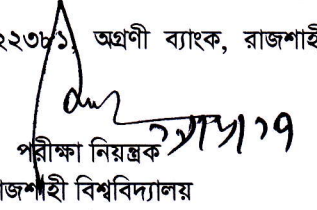 ২২৩৮১, অগ্রণী ব্যাংক, রাজশাহী
পরীক্ষা নিয়ন্ত্রক
রাজশাহী বিশ্ববিদ্যালয়